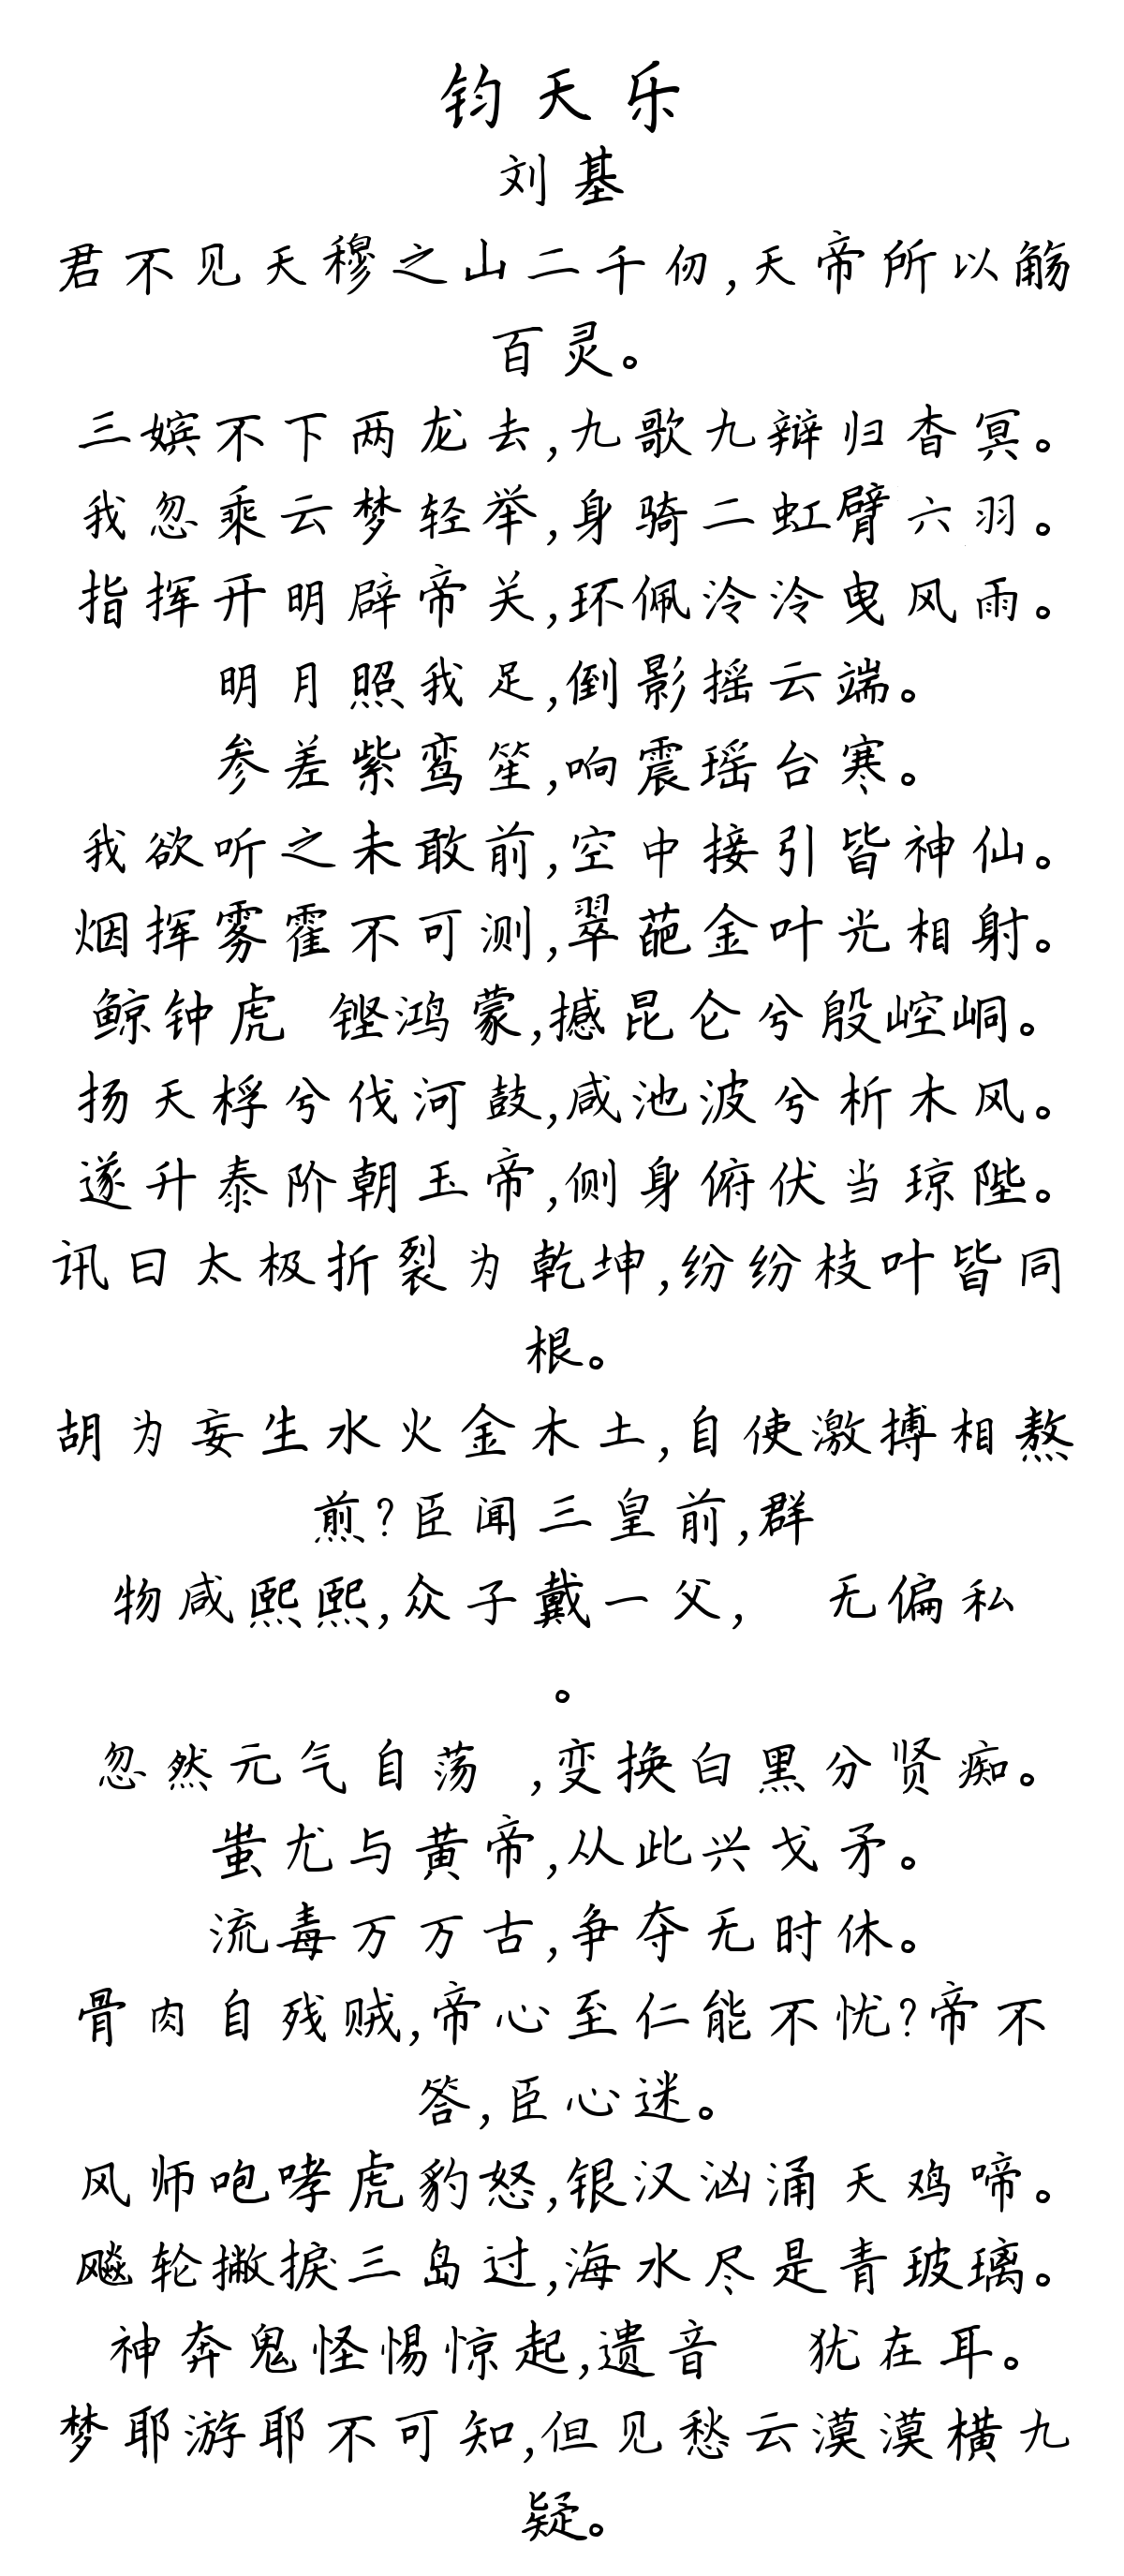 钧天乐
刘基
君不见天穆之山二千仞,天帝所以觞
百灵。
三嫔不下两龙去,九歌九辩归杳冥。
我忽乘云梦轻举,身骑二虹臂六羽。
指挥开明辟帝关,环佩泠泠曳风雨。
明月照我足,倒影摇云端。
参差紫鸾笙,响震瑶台寒。
我欲听之未敢前,空中接引皆神仙。
烟挥雾霍不可测,翠葩金叶光相射。
鲸钟虎 铿鸿蒙,撼昆仑兮殷崆峒。
扬天桴兮伐河鼓,咸池波兮析木风。
遂升泰阶朝玉帝,侧身俯伏当琼陛。
讯曰太极折裂为乾坤,纷纷枝叶皆同
根。
胡为妄生水火金木土,自使激搏相熬
煎?臣闻三皇前,群
物咸熙熙,众子戴一父, 无偏私
。
忽然元气自荡 ,变换白黑分贤痴。
蚩尤与黄帝,从此兴戈矛。
流毒万万古,争夺无时休。
骨肉自残贼,帝心至仁能不忧?帝不
答,臣心迷。
风师咆哮虎豹怒,银汉汹涌天鸡啼。
飚轮撇捩三岛过,海水尽是青玻璃。
神奔鬼怪惕惊起,遗音 犹在耳。
梦耶游耶不可知,但见愁云漠漠横九
疑。